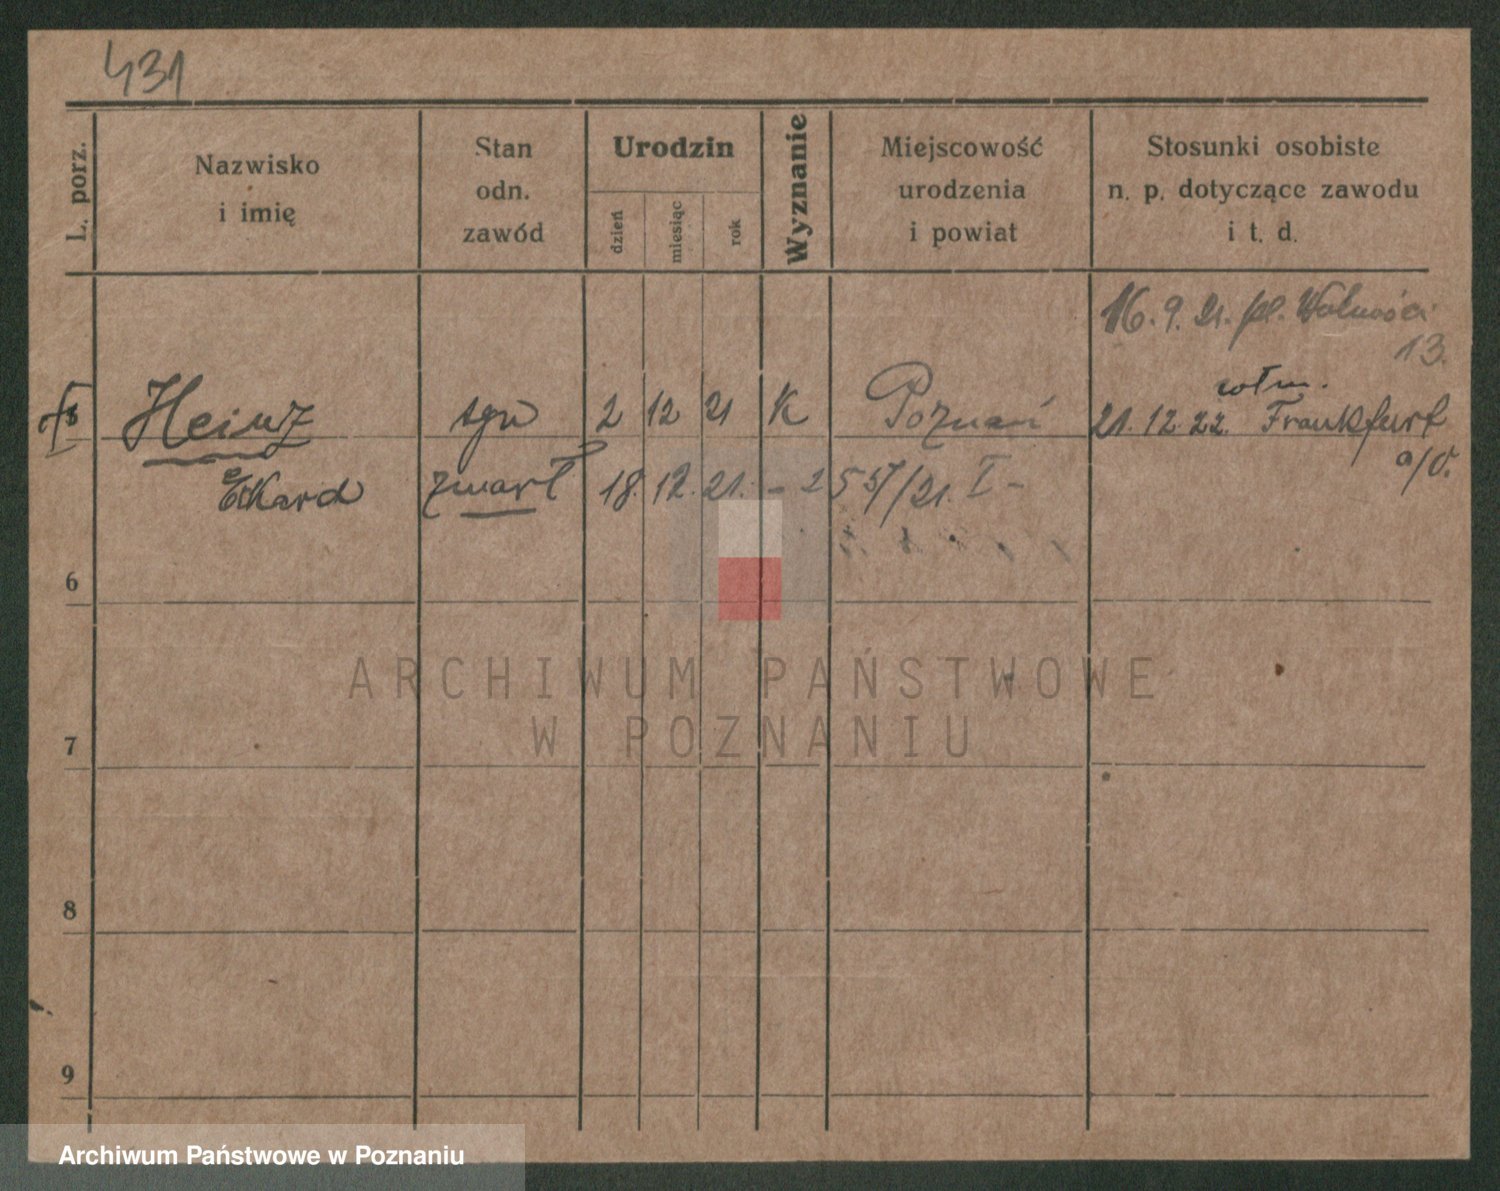 431
L. porz.
Nazwisko
i imię
Stan
odn.
zawód
Urodzin
dzień
miesiąc
rok
Wyznanie
Miejscowość
urodzenia
i powiat
Stosunki osobiste
n. p. dotyczące zawodu
i t. d.
16. 9. 21. pl. Wolności
13.
Heinz
syn
2 12 21 K
Poznań
21. 12. 22. Frankfurt
a/O.
Ekard
zmarł
18. 12. 21.
6
7
8
9
ARCHIWUM PAŃSTWOWE
W POZNANIU
Archiwum Państwowe w Poznaniu